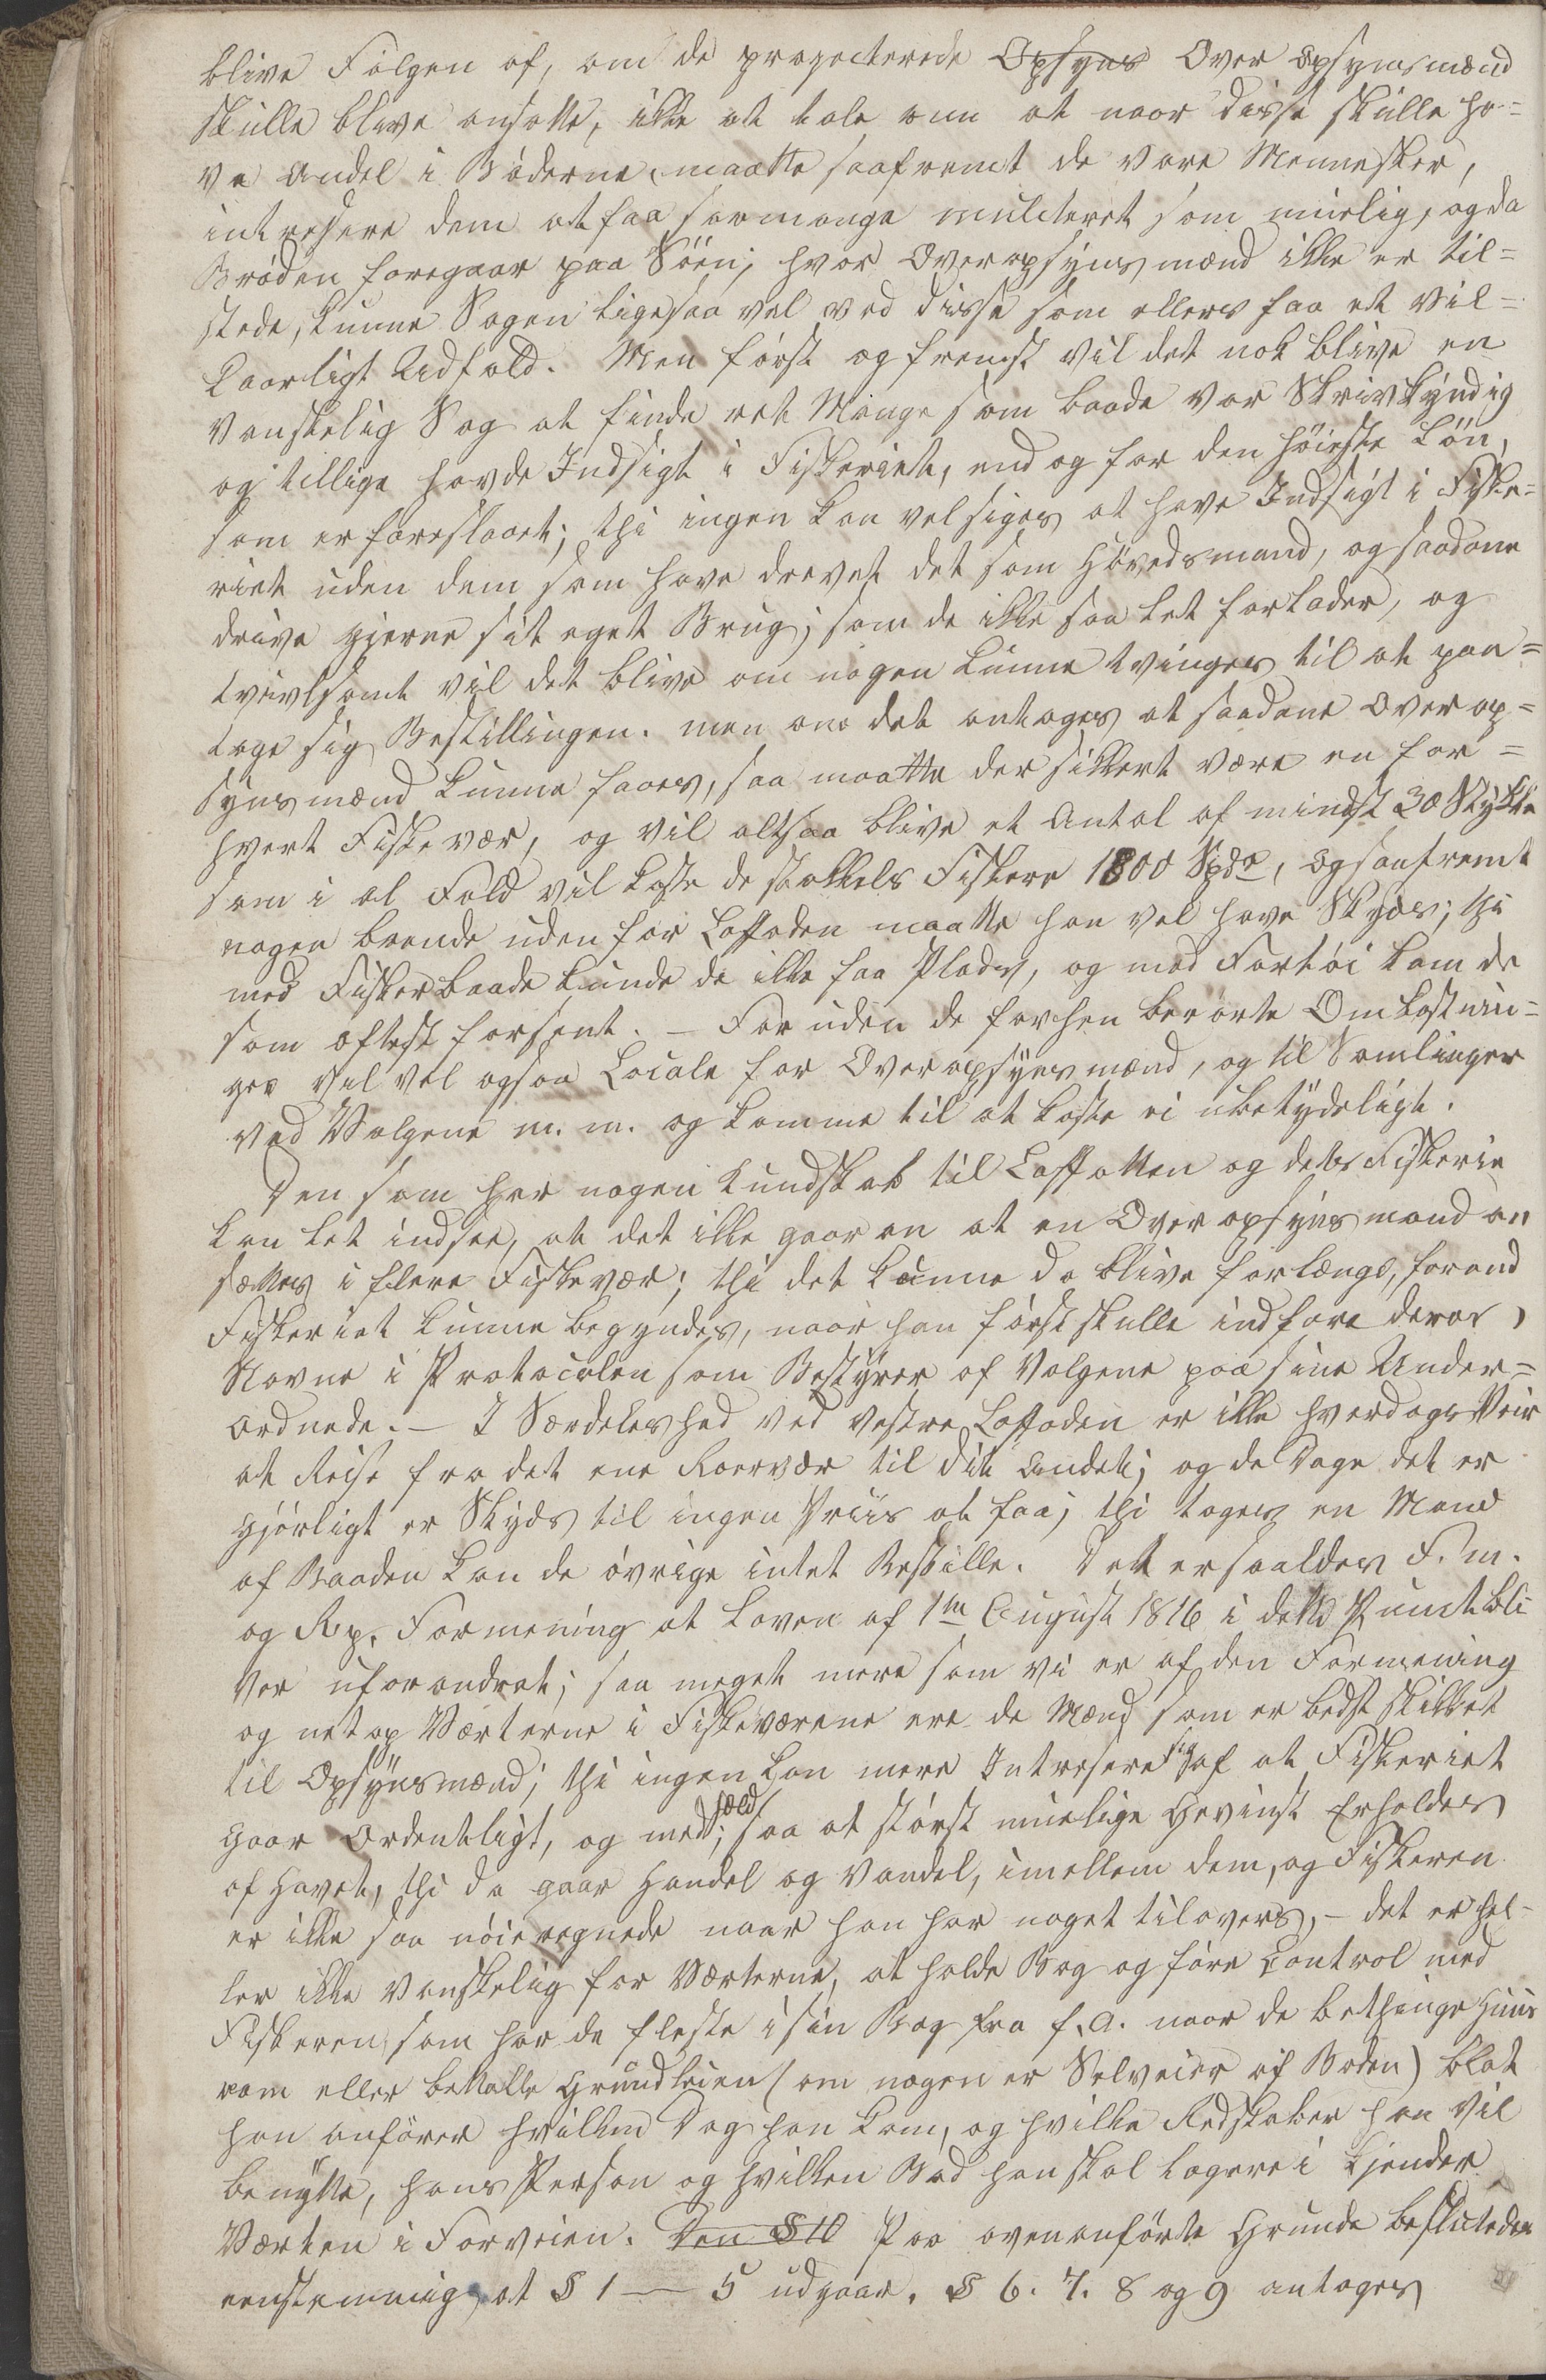 blive Følgen af, om de projecterede Opsyns Over opsynsmænd
skulle blive ansatte, ikke at tale om at naar disse skulle ha-
ve Andel i Bøderne, maatte saafremt de vare Mennesker,
intresere dem at faa saamange mulcteret som muelig, og da
Brøden foregaar paa Søen, hvor Overopsynsmænd ikke er til-
stede, kunne Sagen ligesaa vel ved disse som ellers faa et vil-
kaarligt Udfald. Men først og fremst vil det nok blive en
vanskelig Sag at finde ret Mange som baade var Skrivkyndig
og tillige havde Indsigt i Fiskeriet, end og for den høieste Løn,
som er foreslaaet; thi ingen kan vel siges at have Indsigt i Fiske-
riet uden dem som have drevet det som Høvedsmand, og saadane
drive gjerne sit eget Brug, som de ikke saa let forlader, og
tvivlsomt vil det blive om nogen kunne tvinges til at paa-
tage sig Bestillingen. men om det antages at saadane Overop-
synsmænd kunne faaes, saa maatte der sikkert være en for-
hvert Fiskevær, og vil altsaa blive et Antal af mindst 30 Stykke
som i al Fald vil koste de stakkels Fiskere 1800 Spdr, og saafremt
nogen boende uden for Loffoden maatte han vel have Skyds; thi
med Fiskerbaade kunde de ikke faa Plads, og med Fartøi kom de
som oftest forsent. – For uden de forhen berørte Omkostnin-
ger vil vel ogsaa Locale for Overopsynsmænd, og til Samlinger
ved Valgene m. m. og komme til at koste ei ubetydeligt.
Den som har nogen Kundskab til Loffotten og dets Fiskerie
kan let indsee, at det ikke gaar an at en Overopsynsmand an
sættes i flere Fiskevær; thi det kunne da blive forlænge, forend
Fiskeriet kunne begyndes, naar han først skulle indføre deres
Navne i Protocolen som Bestyrer af Valgene paa sine Under-
ordnede. – I Særdeleshed ved vestre Loffoden er ikke hverdags Veir
at Reise fra det ene Roervær til dit Andet; og de Dage det er
gjørligt er Skyds til ingen Priis at faa; thi tages en Mand
af Baaden kan de øvrige intet Bestille. Det er saaledes F. m.
og Rp. Formening at Loven af 1te August 1816 i dette Punct bli
ver uforandret; saa meget mere som vi er af den Formening
og netop Værterne i Fiskeværene ere de Mænd som er bedst skikket
til Opsynsmænd; thi ingen kan mere Intresere sig af at Fiskeriet
gaar Ordentligt, og med; sæld saa at størst muelige Gevinst Erholdes
af Havet, thi da gaar Handel og Vandel, imellem dem, og Fiskeren
er ikke saa nøieregnede naar han har noget tilovers, – det er hel-
ler ikke vanskelig for Værterne, at holde Bog og føre Control med
Fiskeren som har de fleste i sin Bog fra f. A. naar de bethinge Huus
rom eller betalle Grundleien (om nogen er Selveier af Boden) blot
han anfører hvilken Dag han kom, og hvilke Redskaber han vil
benytte, hans Person og hvilken Bod han skal logere i kjender
Værten i Forveien. Den § 10 Paa ovenanførte Grunde beslutedes
eenstemmig, at § 1 – 5 udgaar. § 6. 7. 8 og 9 antages